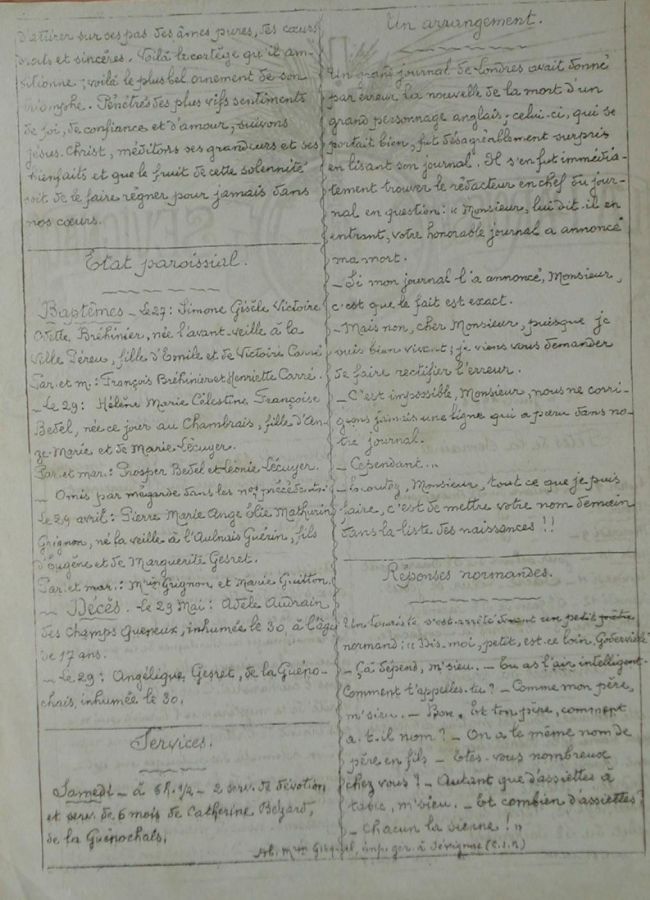 d'attirer sur ses pas des âmes pures, des cœurs
droits et sincères. Voilà le cortège qu'il am-
bitionne ; voilà le plus bel ornement de son
triomphe. Pénétrés des plus vifs sentiments
de foi, de confiance et d'amour, suivons
Jésus-Christ, méditons ses grandeurs et ses
bienfaits et que le fruit de cette solennité
soit de le faire régner pour jamais dans
nos cœurs.
Etat paroissial.
Baptêmes - Le 27 : Simone Gisèle Victoire
Odette, Bréhinier, née l'avant-veille à la
Ville Péreu, fille d'Emile et de Victoire Carré
Par. et m. : François Bréhinier et Henriette Carré.
- Le 29 : Hélène Marie Célestine Françoise
Bedel, née ce jour au Chambrais, fille d'An-
ge-Marie et de Marie Lécuyer.
Par. et mar. : Prosper Bedel et Léonie Lécuyer.
- Omis par mégarde dans les nos précédents :
Le 29 avril : Pierre Marie Ange Elie Mathurin
Grignon, né la veille à l'Aulnais Guérin, fils
d'Eugène et de Marguerite Gesret.
Par. et mar. : Mrin Grignon et Marie Guitton.
- Décès. - Le 29 Mai : Adèle Audrain
des Champs Queneux, inhumée le 30 à l'âge
de 17 ans.
- Le 29 : Angélique Gesret, de la Guépo-
chais, inhumée le 30.
Services.
Samedi - à 6h. 1/2 - 2 serv. de dévotion
et serv. de 6 mois de Catherine Bézard,
de la Guépochais.
Un arrangement.
Un grand journal de Londres avait donné
par erreur la nouvelle de la mort d'un
grand personnage anglais ; celui-ci, qui se
portait bien, fut désagréablement surpris
en lisant son journal. Il s'en fut immédia-
tement trouver le rédacteur en chef du jour-
nal en question : « Monsieur, lui dit-il en
entrant, votre honorable journal a annoncé
ma mort.
- Si mon journal l'a annoncé, Monsieur,
c'est que le fait est exact.
- Mais non, cher Monsieur, puisque je
suis bien vivant ; je viens vous demander
de faire rectifier l'erreur.
- C'est impossible, Monsieur, nous ne corri-
geons jamais une ligne qui a paru dans no-
tre journal.
- Cependant...
- Ecoutez, Monsieur, tout ce que je puis
faire, c'est de mettre votre nom demain
dans la liste des naissances !!
Réponses normandes.
Un touriste s'est arrêté devant un petit pâtre
normand : « Dis-moi, petit, est-ce loin Goderville
- Ça dépend, m'sieu. - Tu as l'air intelligent.
Comment t'appelles-tu ? - Comme mon père,
m'sieu. - Bon. Et ton père, comment
a-t-il nom ? - On a le même nom de
père en fils - Etes-vous nombreux
chez vous ? - Autant que d'assiettes à
table, m'sieu. - Et combien d'assiettes ?
- Chacun la sienne ! »
imp. ger. à Sévignac (C.d.N)